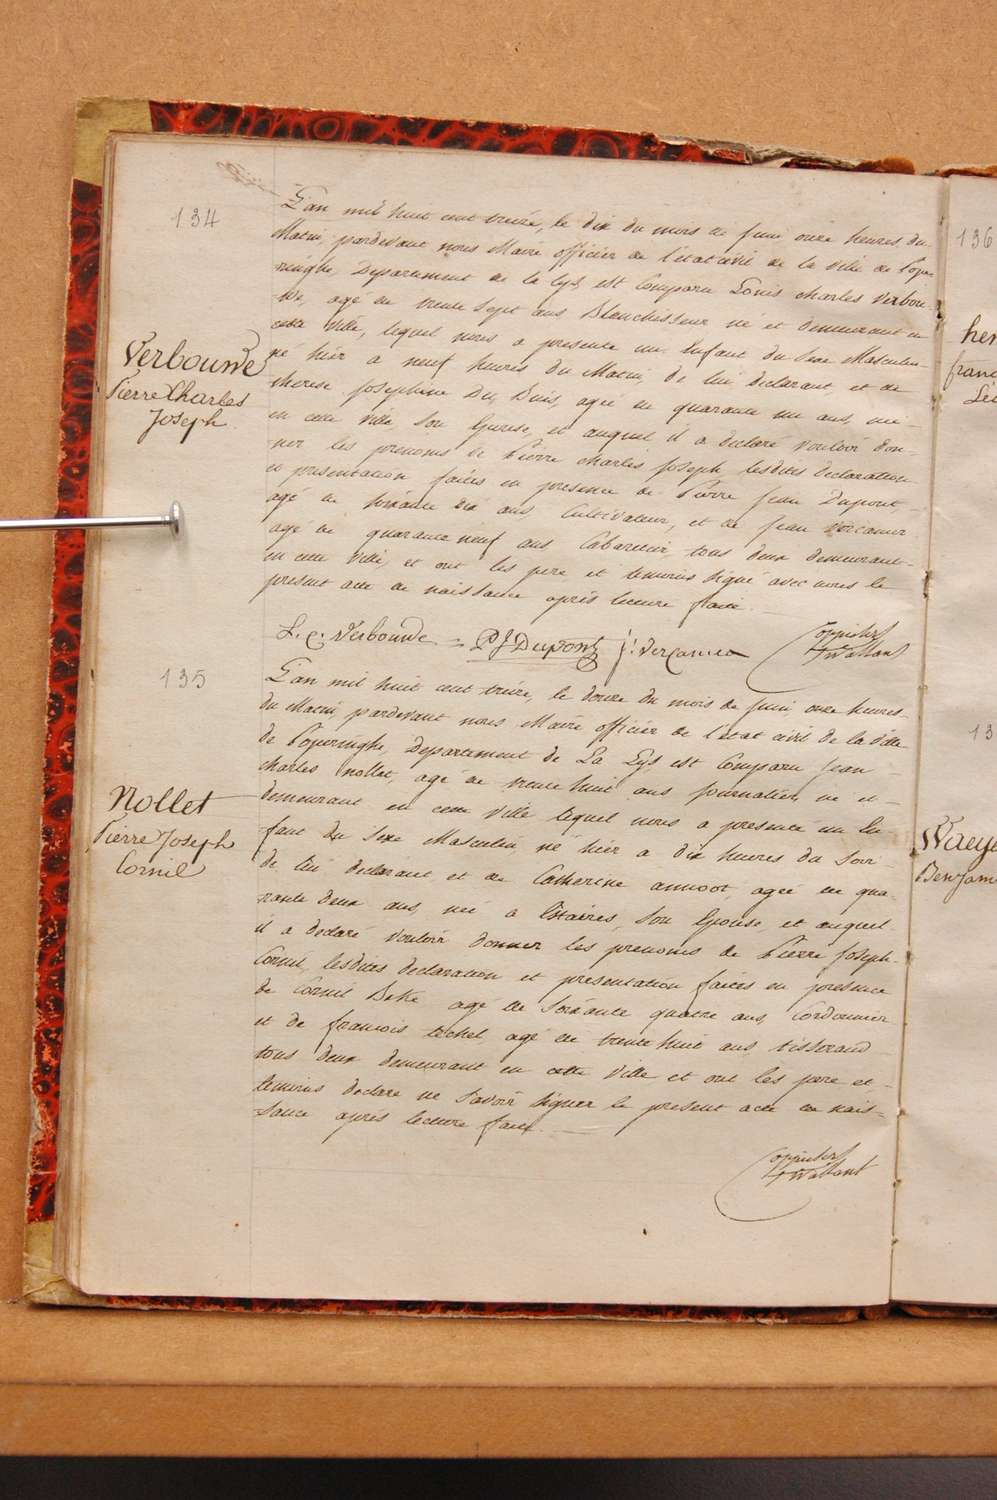 134
L'an mil huit cent treize, le dix du mois de juin onze heures du
Matin, pardevant nous Maire officier de l'état civil de la ville de Pope
ringhe, Departement de la Lys, est Comparu Louis Charles Verbou-
we, agé de trente sept ans Blanchisseur né et demeurant en
cette ville, lequel nous a presenté un Enfant du sexe Masculin
né hier a neuf heures du Matin, de lui declarant, et de
therese Josephine De Duis, agée de quarante un ans, née
en cette ville, son Epouse, et auquel il a declaré vouloir don-
ner les prenoms de Pierre Charles Joseph lesdites declaration
et presentation faites en presence de Pierre Jean Dupont
agé de soixante dix ans Cultivateur, et de Jean Vercamer
agé de quarante neuf ans Cabaretier, tous deux demeurant
en cette Ville, et ont les pere et temoins signé avec nous le
present acte de naissance après lecture faite.
Verbouwe
Pierre Charles
Joseph
L. C. Verbouwe P J Dupont J. Vercamer
135
L'an mil huit cent treize, le douze du mois de juin, onze heures
du Matin, pardevant nous Maire officier de l'état civil de la ville
de Poperinghe, Departement de La Lys est Comparu Jean
charles nollet, agé de trente huit ans journalier, né et
demeurant en cette Ville lequel nous a presenté un En
fant du sexe Masculin né hier a dix heures du soir
de lui declarant et de Catherine annoot, agée de qua-
rante deux ans, née a Estaires, son Epouse, et auquel
il a declaré vouloir donner les prenoms de Pierre Joseph
Cornil, lesdites declaration et presentation faites en presence
de Cornil Beke agé de soixante quatre ans, Cordonnier
et de francois techel agé de trente huit ans tisserand
tous deux demeurant en cette Ville et ont les pere et
temoins declaré ne savoir signer le present acte de nais=
sance après lecture faite.
Nollet
Pierre Joseph
Cornil
136
her
franc
13
Waeye
Benjam